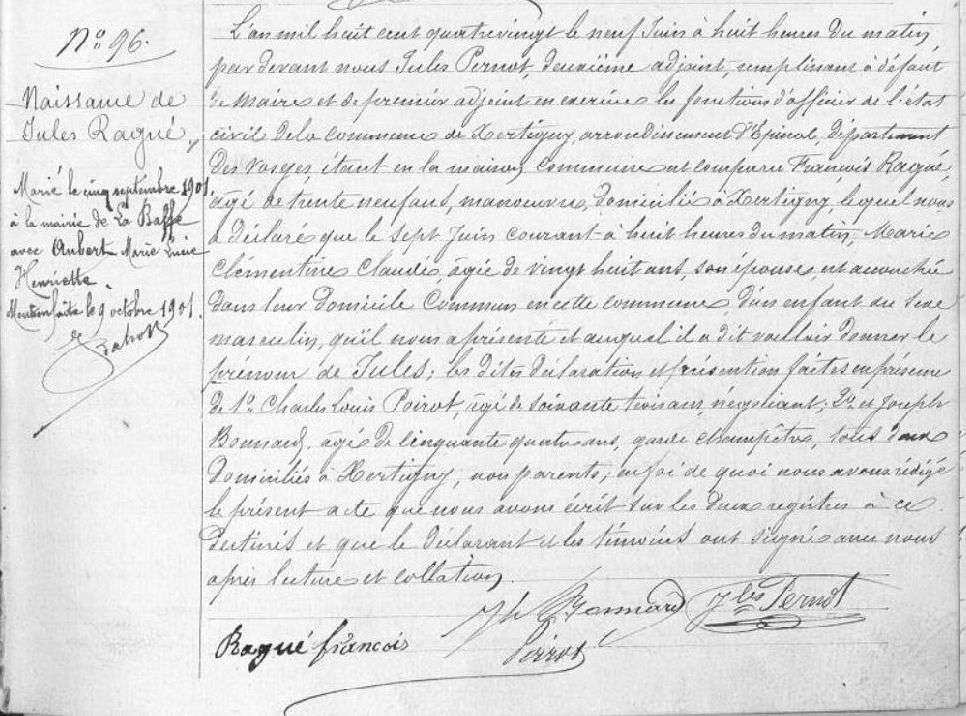 N° 96.
Naissance de
Jules Ragué
Marié le cinq septembre 1901
à la mairie de La Baffe
avec Aubert Marie Lucie
Henriette.
Mention faite le 9 octobre 1901.
L'an mil huit cent quatre vingt le neuf Juin à huit heures du matin,
par devant nous Jules Pernot, deuxième adjoint, remplissant à défaut
de Maire et de premier adjoint en exercice les fonctions d'officier de l'état
civil de la commune de Xertigny, arrondissement d'Epinal, département
des Vosges, étant en la maison commune est comparu François Ragué,
âgé de trente neuf ans, manoeuvre, domicilié à Xertigny, lequel nous
a déclaré que le sept Juin courant à huit heures du matin, Marie
Clémentine Claude, âgée de vingt huit ans, son épouse est accouchée
dans leur domicile commun en cette commune, d'un enfant du sexe
masculin, qu'il nous a présenté et auquel il a dit vouloir donner le
prénom de Jules; les dites déclaration et présention faites en présence
de 1° Charles Louis Poirot, âgé de soixante trois ans négociant; 2° et Joseph
Bonnard, âgé de cinquante quatre ans, garde champêtre, tous deux
domiciliés à Xertigny, non parents; en foi de quoi nous avons rédigé
le présent acte que nous avons écrit sur les deux registres à ce
destinés et que le déclarant et les témoins ont signé avec nous
après lecture et collation.
Jh Bonnard Jles Pernot
Ragué françois Poirot